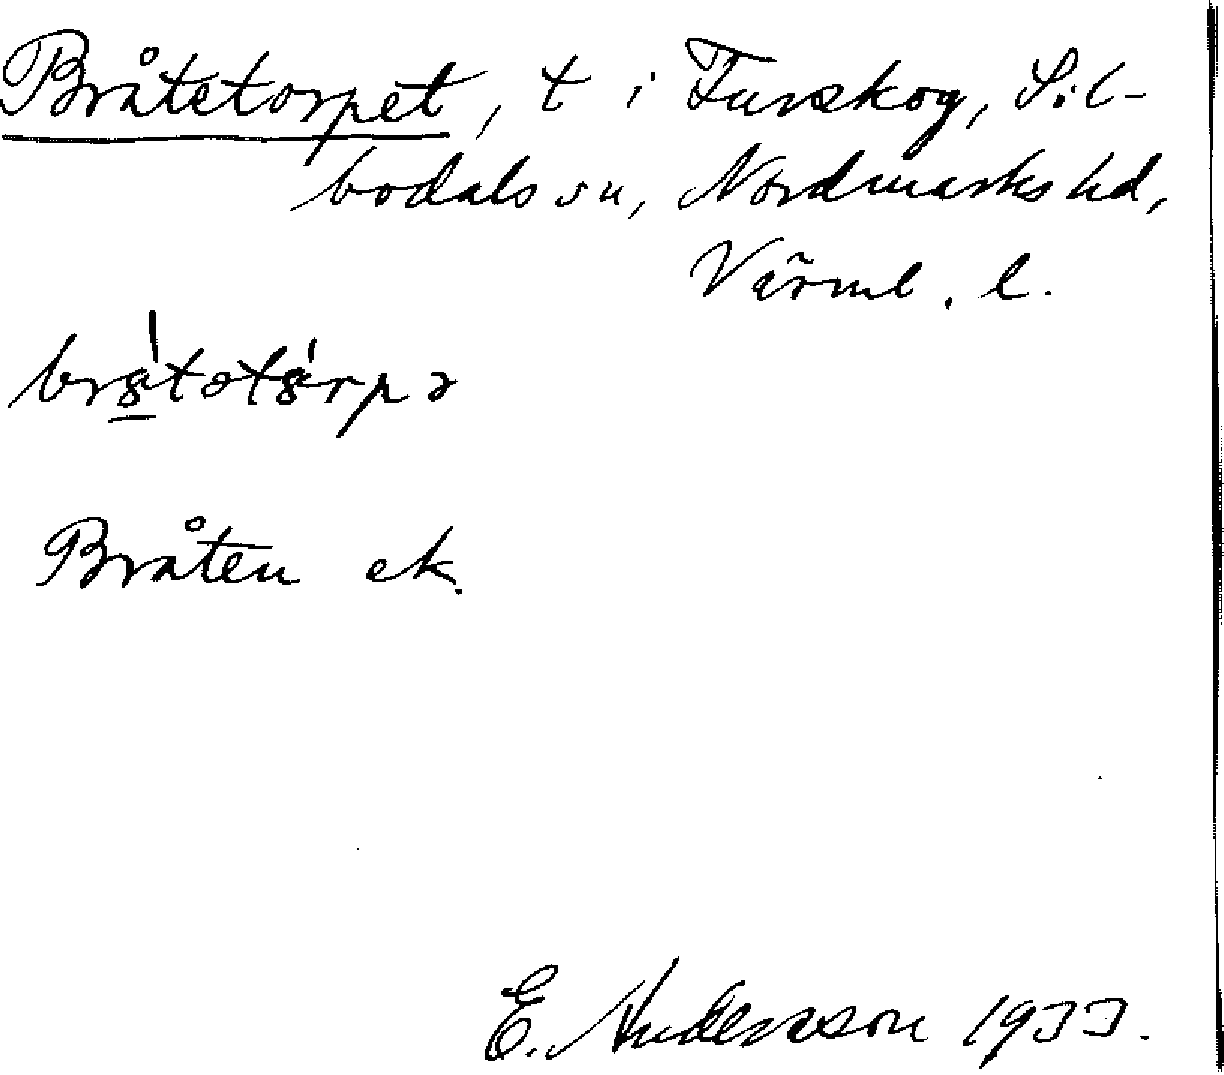 Bråtetorpet, t i Furskog, Sil-
bodals sn, Nordmarks hd,
Värml. l.
Bråten ek.
E. Andersson 1933.